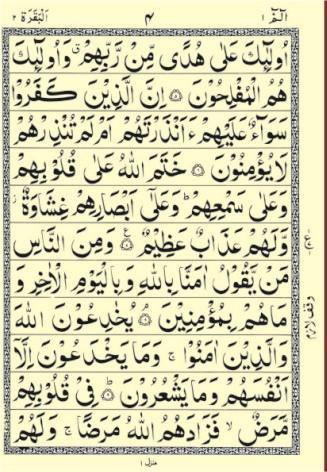 الٓمّٓ ١ ٤ اَلْبَقَرَة ٢
اُولٰٓئِكَ عَلٰى هُدًى مِّنْ رَّبِّهِمْ ۗ وَاُولٰٓئِكَ
هُمُ الْمُفْلِحُوْنَ ۝۵ اِنَّ الَّذِيْنَ كَفَرُوْا
سَوَآءٌ عَلَيْهِمْ ءَاَنْذَرْتَهُمْ اَمْ لَمْ تُنْذِرْهُمْ
لَا يُؤْمِنُوْنَ ۝۶ خَتَمَ اللّٰهُ عَلٰى قُلُوْبِهِمْ
وَعَلٰى سَمْعِهِمْ ؕ وَعَلٰٓى اَبْصَارِهِمْ غِشَاوَةٌ ز
وَّلَهُمْ عَذَابٌ عَظِيْمٌ ۝۷ وَمِنَ النَّاسِ
مَنْ يَّقُوْلُ اٰمَنَّا بِاللّٰهِ وَبِالْيَوْمِ الْاٰخِرِ وَ
مَا هُمْ بِمُؤْمِنِيْنَ ۝۸ يُخٰدِعُوْنَ اللّٰهَ
وَالَّذِيْنَ اٰمَنُوْا ۚ وَمَا يَخْدَعُوْنَ اِلَّآ
اَنْفُسَهُمْ وَمَا يَشْعُرُوْنَ ۝۹ فِيْ قُلُوْبِهِمْ
مَّرَضٌ ۙ فَزَادَهُمُ اللّٰهُ مَرَضًا ۚ وَلَهُمْ
وقف لازم
منزل ١